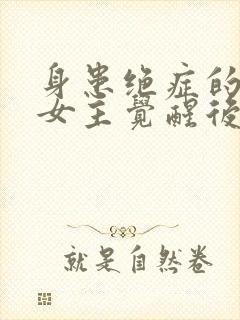 身患绝症的
女主覺醒後
就是自然卷